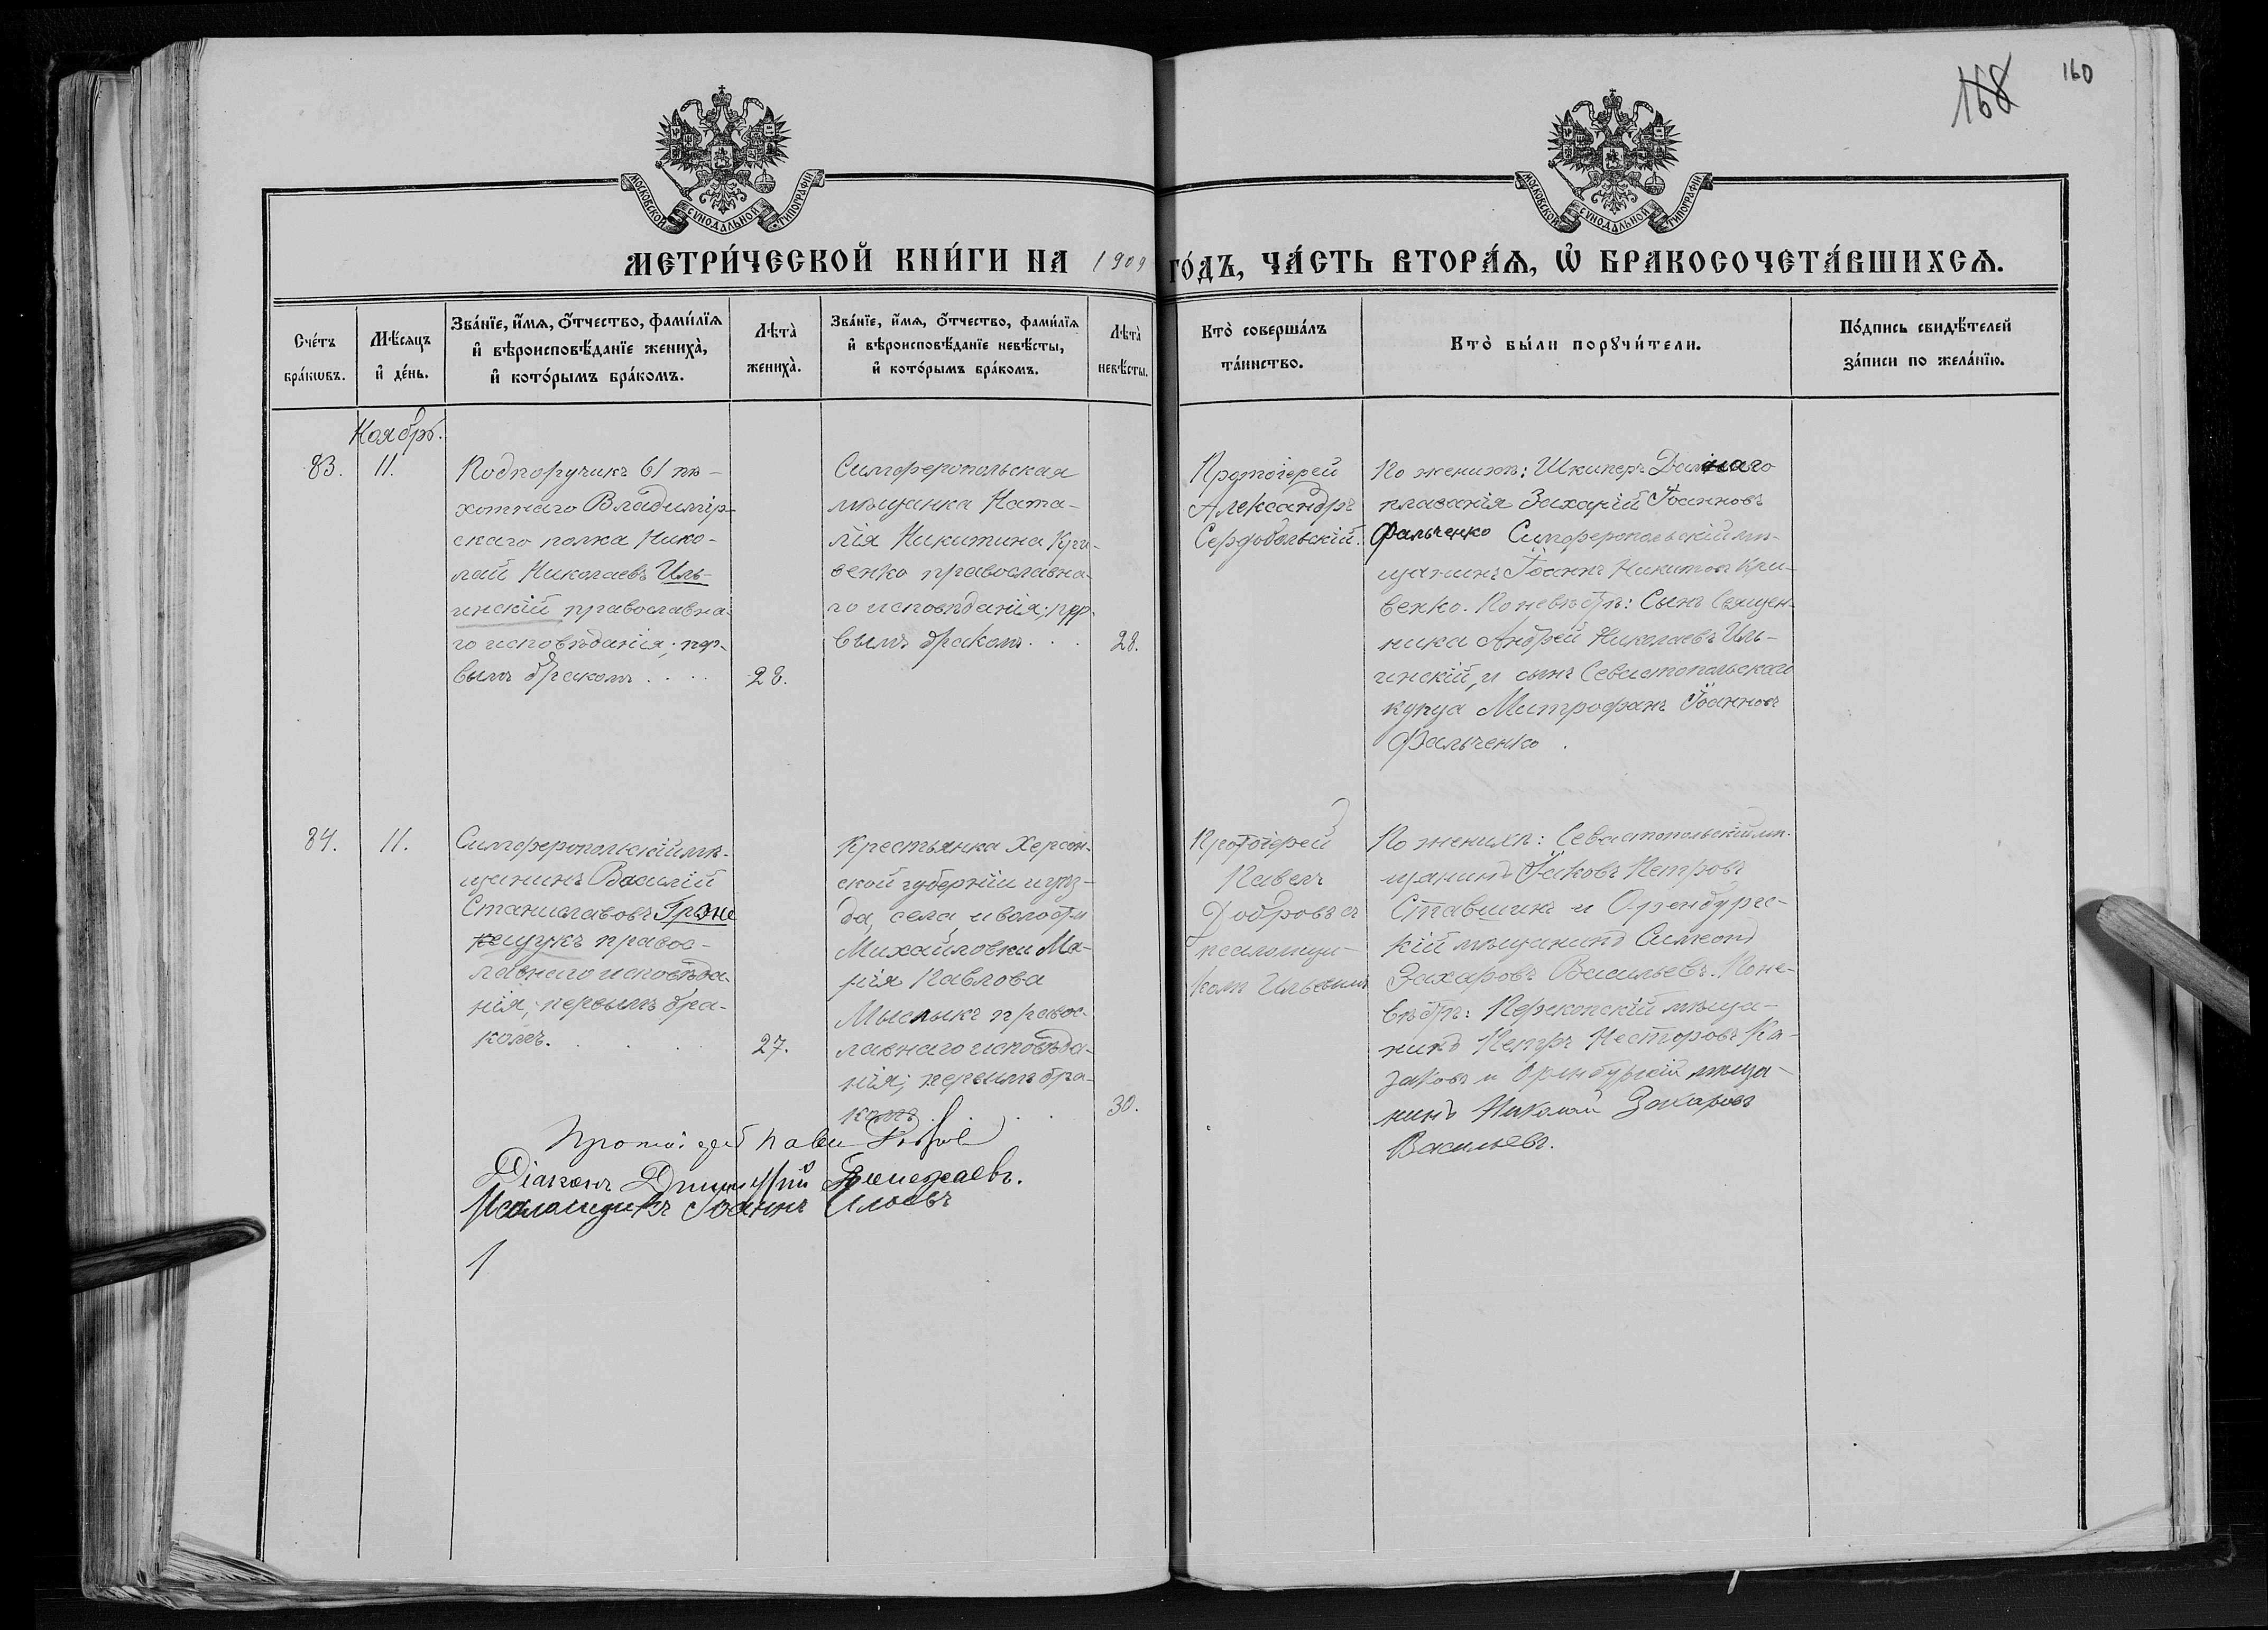 168 160
МОСКОВСКОЙ СѴНОДАЛЬНОЙ ТИПОГРАФІИ
МОСКОВСКОЙ СѴНОДАЛЬНОЙ ТИПОГРАФІИ
МЕТРИ́ЧЕСКОЙ КНИ́ГИ НА 1909 ГО́ДЪ, ЧА́СТЬ ВТОРА́Я, Ѽ БРАКОСОЧЕТА́ВШИХСЯ.
Сче́тъ
бра́кωвъ.
Мѣ́сяцъ
и҆ де́нь.
Зва́нїе, и҆́мя, ѻ҆́тчество, фами́лїя
и҆ вѣроисповѣ́данїе жениха̀,
и҆ кото́рымъ бра́комъ.
Лѣта̀
жениха̀.
Зва́нїе, и҆́мя, ѻ҆́тчество, фами́лїя
и҆ вѣроисповѣ́данїе невѣ́сты,
и҆ кото́рымъ бра́комъ.
Лѣта̀
невѣ́сты.
Кто̀ соверша́лъ
та́инство.
Кто̀ бы́ли порꙋчи́тели.
По́дпись свидѣ́телей
за́писи по жела́нїю.
Ноябрь.
83.
11.
Подпоручикъ 61 пѣ-
хотнаго Владимір-
скаго полка Нико-
лай Николаевъ Иль-
инскій православна-
го исповѣданія; пер-
вымъ бракомъ . . . .
28.
Симферопольская
мѣщанка Ната-
лія Никитина Кри-
венко православна-
го исповѣданія; пер-
вымъ бракомъ . . .
28.
Протоіерей
Александръ
Сердобольскій.
По женихѣ: Шкиперъ Дальнаго
плаванія Захарій Іоанновъ
Фальченко Симферопольскій мѣ-
щанинъ Іоаннъ Никитовъ Кри-
венко. По невѣстѣ: Сынъ Священ-
ника Андрей Николаевъ Иль-
инскій, и сынъ Севастопольскаго
купца Митрофанъ Іоанновъ
Фальченко.
84.
11.
Симферопольскій мѣ-
щанинъ Василій
Станиславовъ Гране
щукъ правос-
лавнаго исповѣда-
нія; первымъ бра-
комъ. . . .
27.
Крестьянка Херсон-
ской губерніи и уѣз-
да, села и волости
Михайловки Ма-
рія Павлова
Мыслыкъ правос-
лавнаго исповѣда-
нія; первымъ бра-
комъ . . . .
30.
Протоіерей
Павелъ
Добровъ съ
псаломщи-
комъ Ильевымъ
По женихѣ: Севастопольскій мѣ-
щанинъ Іаковъ Петровъ
Ставшинъ и Оренбургс-
кій мѣщанинъ Симеонъ
Захаровъ Васильевъ. По не-
вѣстѣ: Перекопскій мѣща-
нинъ Петръ Несторовъ Ка-
заковъ и Оренбургскій мѣща-
нинъ Николай Захаровъ
Васильевъ.
Протоіерей Павелъ Добровъ
Діаконъ Димитрій
Псаломщикъ Іоаннъ Ильевъ